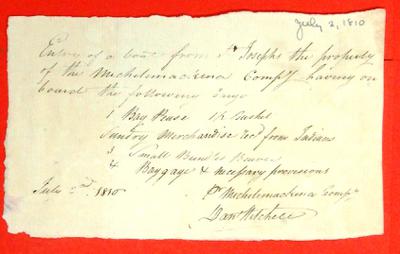 July 2, 1810
Entry of a boat from St Josephs the property
of the Michilimackina Compy having on
board the following
1 Bag Pease 1½ Bushel
Sundry Merchandise recd from Indians
3 Small Bundles Beaver
4 Baggage & necessary provisions
July 2nd 1810
Pr Michilimackina Compy
Dav Mitchell